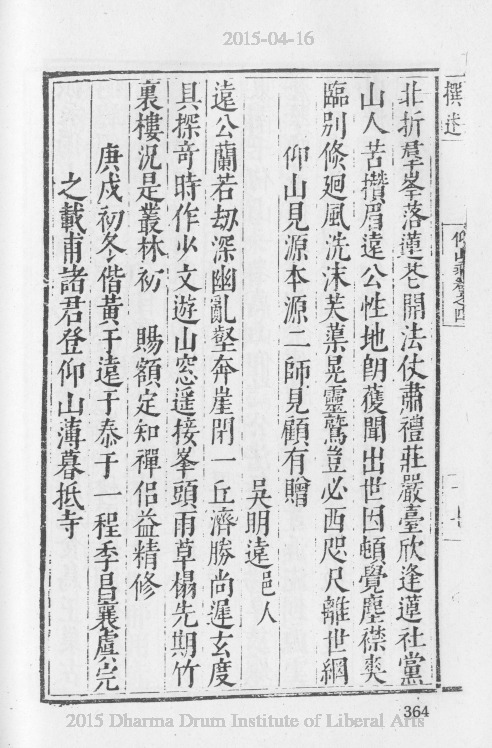 2015-04-16
撰述
仰山乘卷之四
北折羣峯落蓮花開法仗肅禮莊嚴臺欣逢蓮社黨
山人苦攢眉遠公性地朗獲聞出世因頓覺塵襟爽
臨別倏廻風洗沫芙蕖晃靈鷲豈必西咫尺離世網
仰山見源本源二師見顧有贈
吳明遠邑人
遠公蘭若刼深幽亂壑奔崖閉一丘濟勝尚遲玄度
具探奇時作少文遊山窓遥接峯頭雨草榻先期竹
裏樓況是叢林初 賜額定知禪侶益精修
庚戌初冬偕黃于遠于泰于一程季昌襄虞公完
之載甫諸君登仰山薄暮抵寺
364
2015 Dharma Drum Institute of Liberal Arts